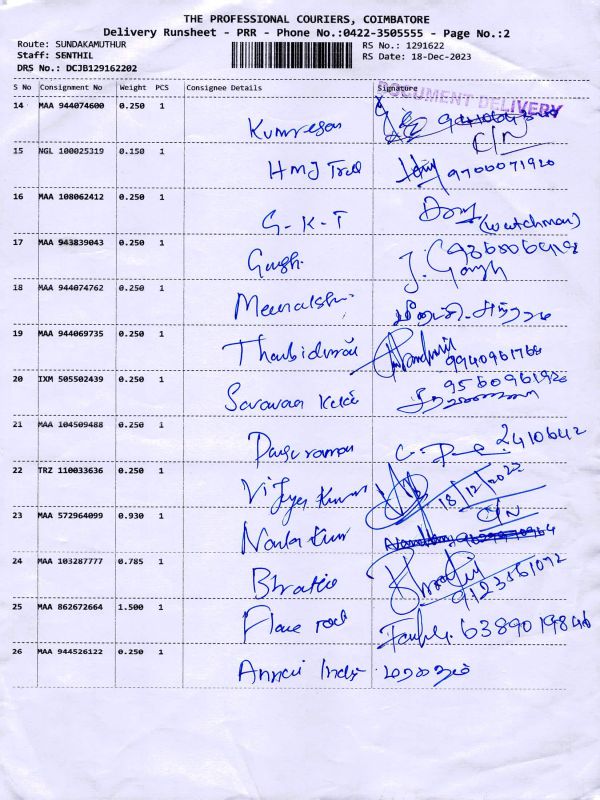 THE PROFESSIONAL COURIERS, COIMBATORE
Delivery Runsheet - PRR - Phone No.:0422-3505555 - Page No.:2
Route: SUNDAKAMUTHUR
Staff: SENTHIL
DRS No.: DCJB129162202
RS No.: 1291622
RS Date: 18-Dec-2023
S No Consignment No Weight PCS Consignee Details Signature
DOCUMENT DELIVERY
14 MAA 944074600 0.250 1
Kumresan
C/N
15 NGL 100025319 0.150 1
HMJ 9700071920
16 MAA 108062412 0.250 1
G-K-T
(watchman)
17 MAA 943839043 0.250 1
J. Gangh
18 MAA 944074762 0.250 1
Meenakshi
19 MAA 944069735 0.250 1
9940961766
20 IXM 505502439 0.250 1
Saravana 9560961920
21 MAA 104509488 0.250 1
2410642
22 TRZ 110033636 0.250 1
Vijaya Kumar 18/12/2023
23 MAA 572964099 0.930 1
C/N
24 MAA 103287777 0.785 1
9123561092
25 MAA 862672664 1.500 1
6389019846
26 MAA 944526122 0.250 1
Annai